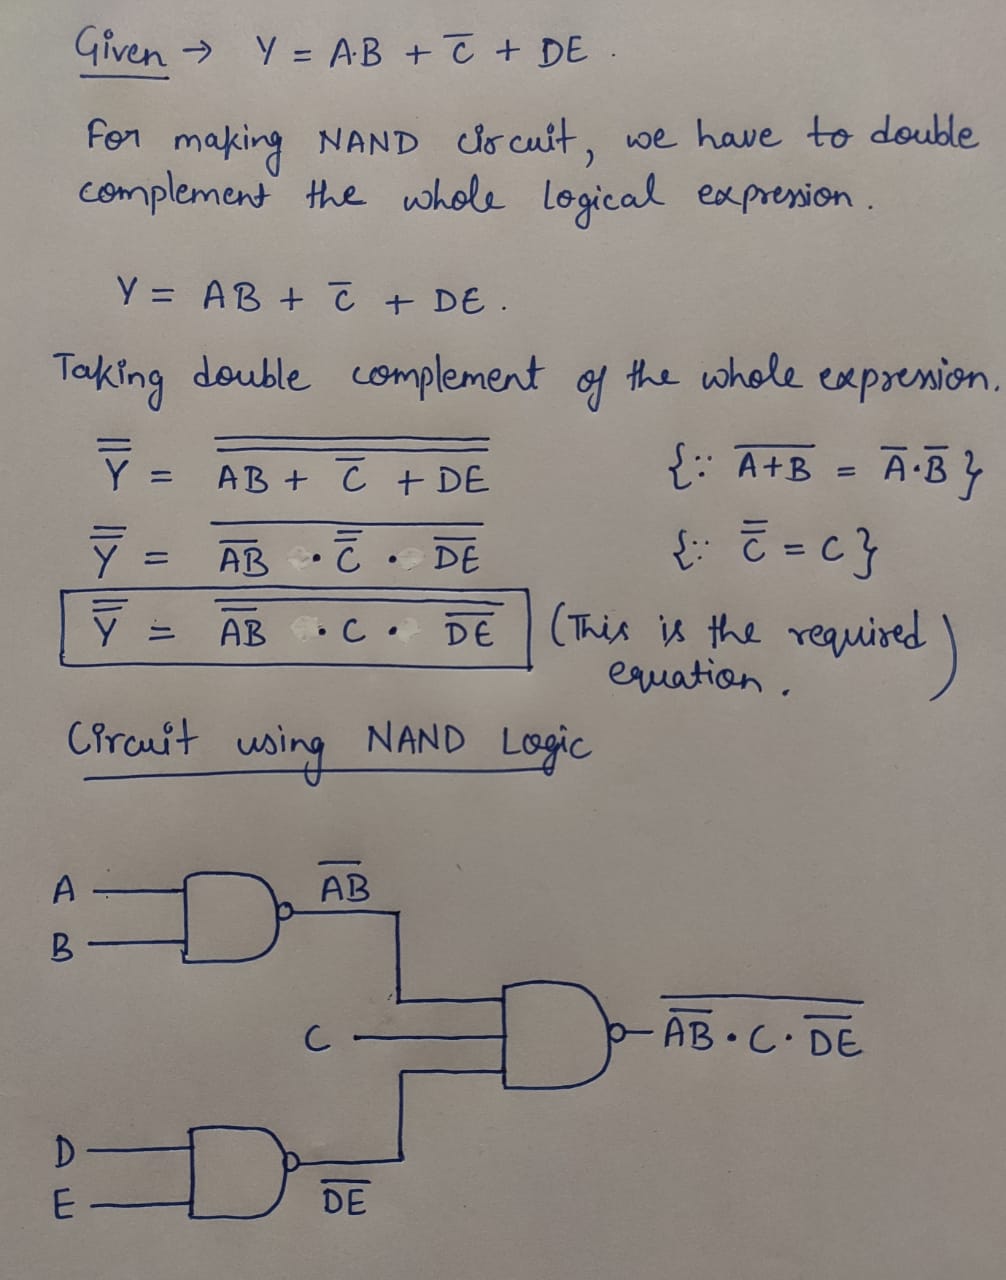 Given → Y = A·B + C̅ + DE .
For making NAND circuit, we have to double
complement the whole logical expression .
Y = AB + C̅ + DE .
Taking double complement of the whole expression.
Y̿ = \overline{\overline{AB + \overline{C} + DE}} {∵ \overline{A+B} = A̅·B̅}
Y̿ = \overline{\overline{AB} · \overline{\overline{C}} · \overline{DE}} {∵ \overline{\overline{C}} = C}
Y̿ = \overline{\overline{AB} · C · \overline{DE}} (This is the required
equation .)
Circuit using NAND Logic
A
\overline{AB}
B
C
\overline{\overline{AB} · C · \overline{DE}}
D
E
\overline{DE}